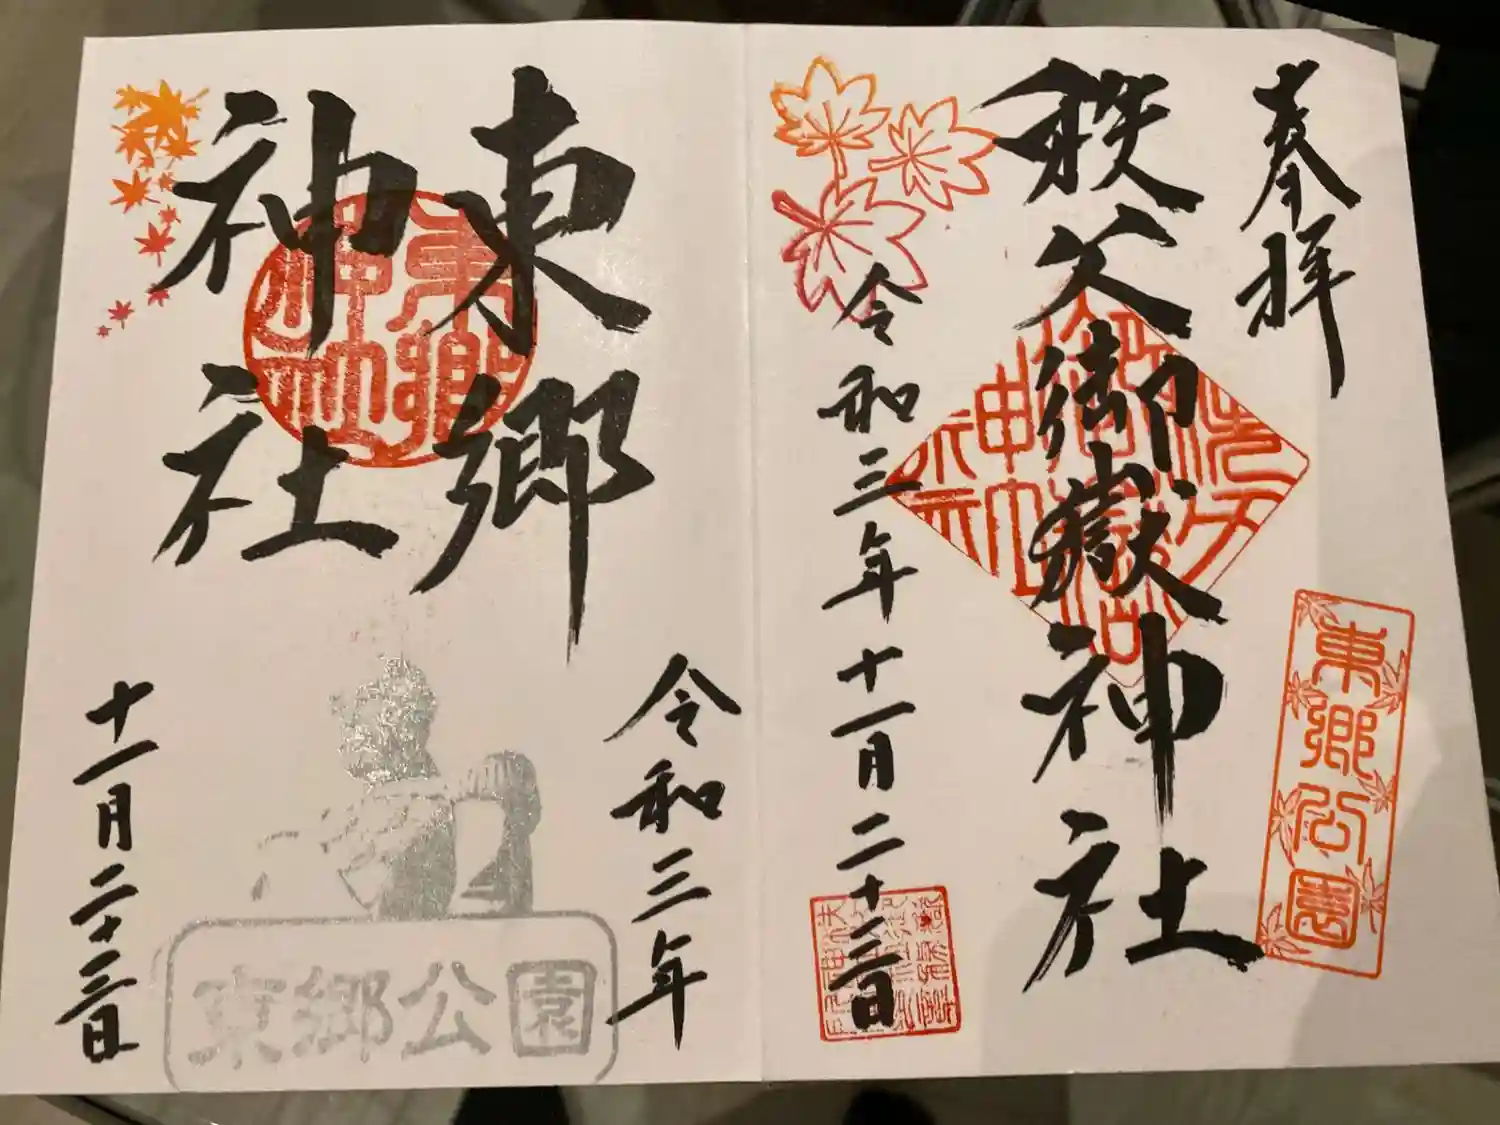 奉拝
秩父御嶽神社
令和三年十一月二十三日
東郷公園
東郷
神社
令和三年
十一月二十三日
東郷公園